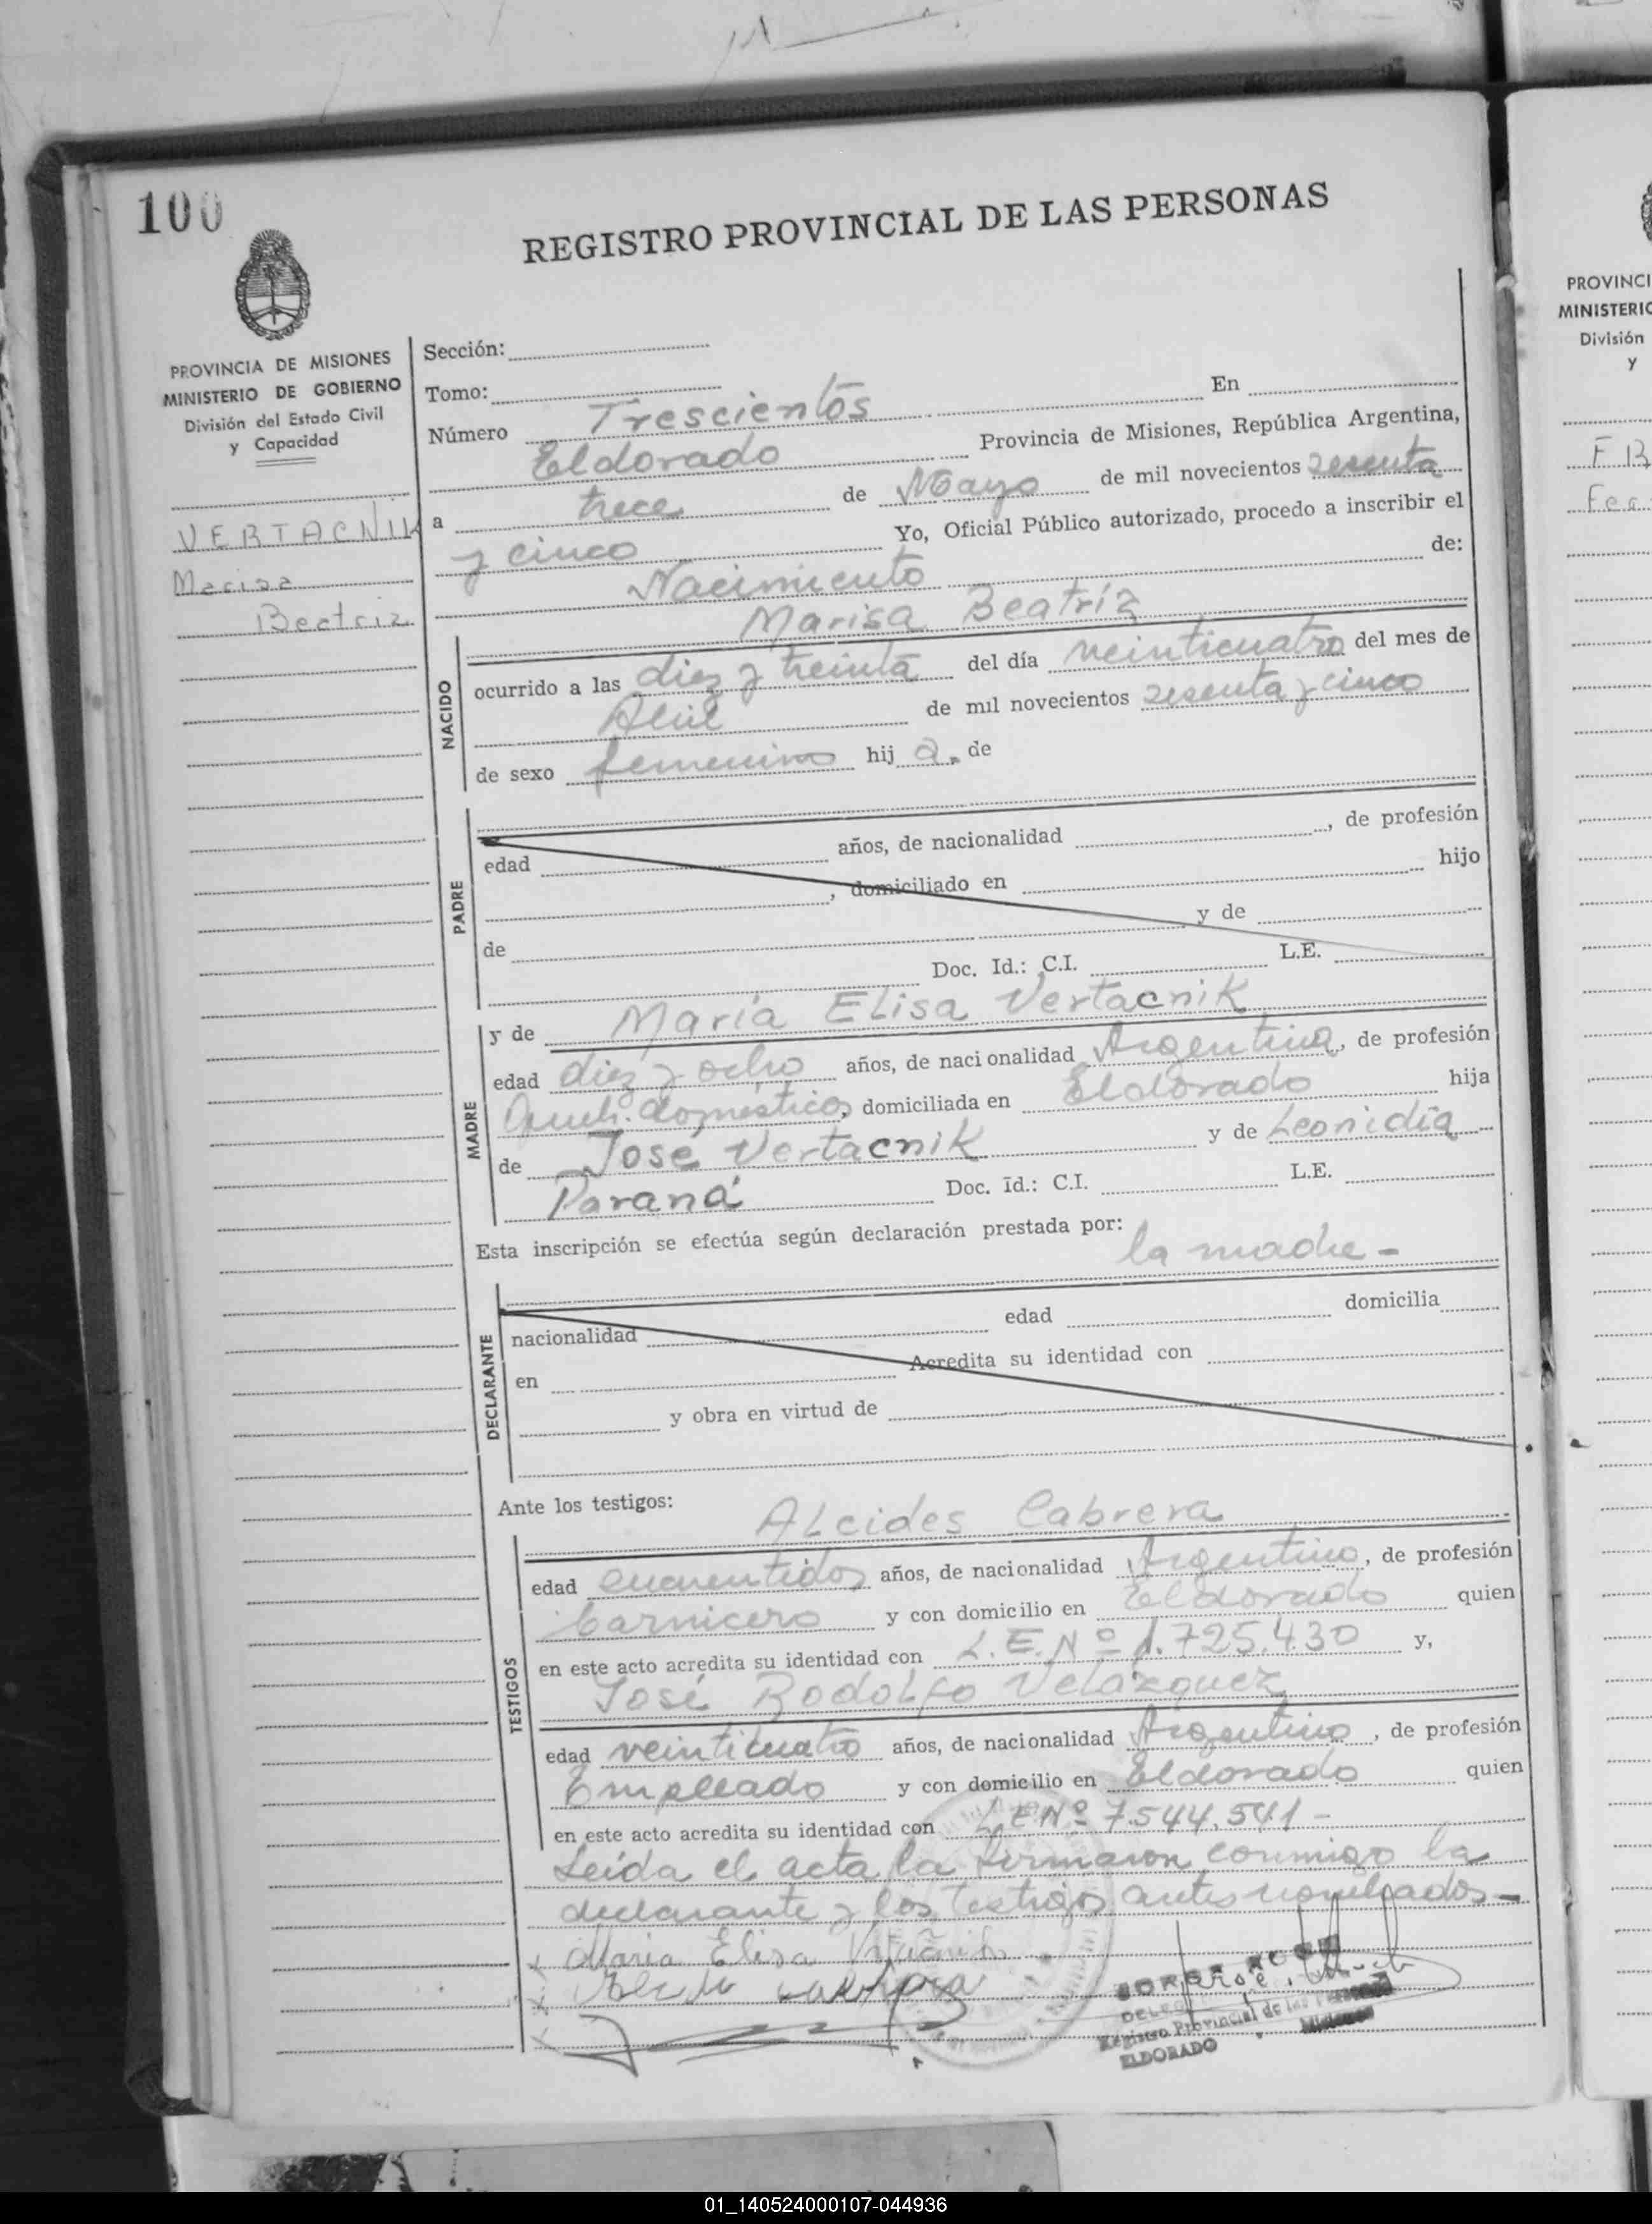 100
REGISTRO PROVINCIAL DE LAS PERSONAS
PROVINCIA DE MISIONES
MINISTERIO DE GOBIERNO
División del Estado Civil
y Capacidad
VERTACNIK
Marisa
Beatriz
Sección:
Tomo:
Número Trescientos En
Eldorado Provincia de Misiones, República Argentina,
a trece de Mayo de mil novecientos sesenta
y cinco Yo, Oficial Público autorizado, procedo a inscribir el
Nacimiento de:
Marisa Beatríz
NACIDO
ocurrido a las diez y treinta del día veinticuatro del mes de
Abril de mil novecientos sesenta y cinco
de sexo femenino hij a. de
PADRE
edad años, de nacionalidad , de profesión
, domiciliado en hijo
de y de
Doc. Id.: C.I. L.E.
MADRE
y de María Elisa Vertacnik
edad diez y ocho años, de nacionalidad Argentina, de profesión
Queh. domésticos, domiciliada en Eldorado hija
de José Vertacnik y de Leonidia
Paraná Doc. Id.: C.I. L.E.
Esta inscripción se efectúa según declaración prestada por:
la madre -
DECLARANTE
nacionalidad edad domicilia
en Acredita su identidad con
y obra en virtud de
Ante los testigos:
Alcides Cabrera
TESTIGOS
edad años, de nacionalidad Argentino, de profesión
Carnicero y con domicilio en Eldorado quien
en este acto acredita su identidad con L.E.Nº 1.725.430 y,
José Rodolfo Velázquez
edad veinticuatro años, de nacionalidad Argentino, de profesión
Empleado y con domicilio en Eldorado quien
en este acto acredita su identidad con L.E.Nº 7.544.541 -
Leída el acta la firmaron conmigo la
declarante y los testigos antes nombrados -
Maria Elisa
JORGE
Registro Provincial de las Personas
ELDORADO Misiones
PROVINCI
MINISTERIO
División
y
01_140524000107-044936